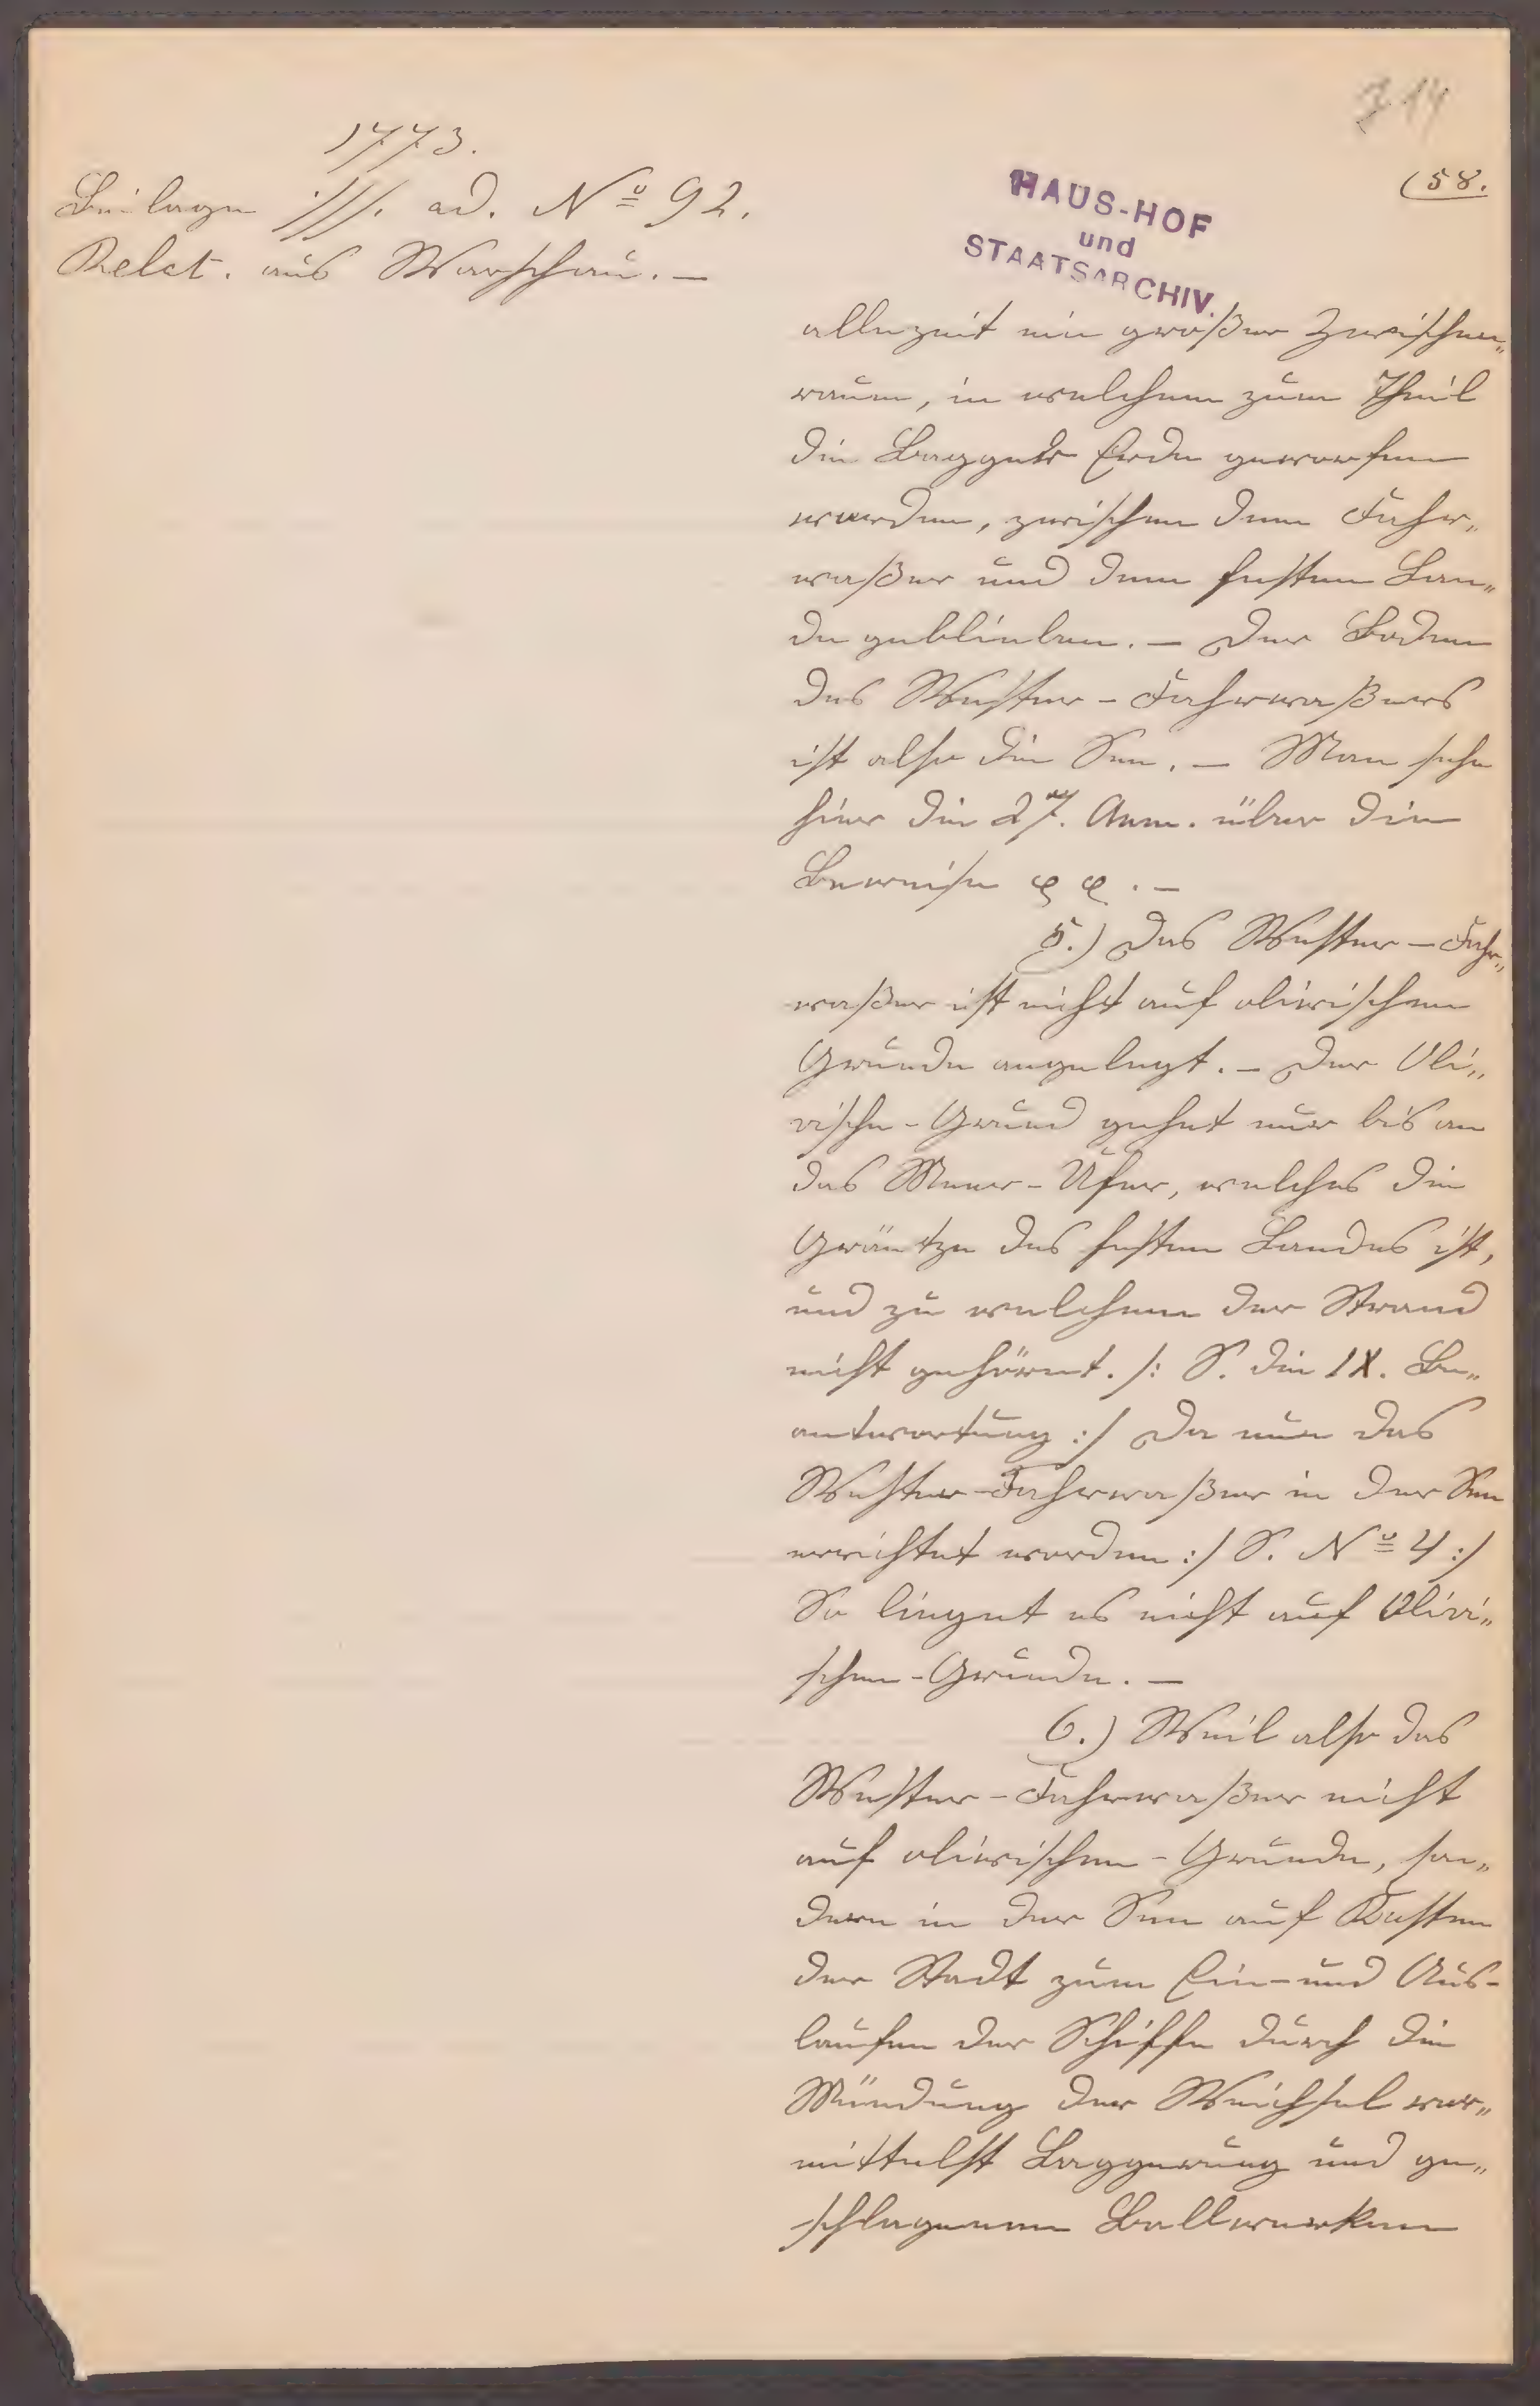 314
1773.
(58.
Beilage ///. ad. No 92.
Relat. aus Warschau. —
HAUS-HOF
und
STAATSARCHIV.
allezeit ein großer Zwischen„
raum, in welchem zum Theil
die Bagger Erde geworfen
worden, zwischen dem Fahr„
waßer und dem festen Lan„
de geblieben. — Der Boden
des Wester-Fahrwaßers
ist also die See. — Man sehe
hier die 27. Anm. über die
Beweise
5.) Das Wester-Fahr„
waßer ist nicht auf olivischem
Grunde angelegt. — Der Oli„
vische-Grund gehet nur bis an
das Meer-Ufer, welches die
Gräntze des festen Landes ist,
und zu welchem der Strand
nicht gehöret. /: S. die IX. Be„
antwortung :/ Da nun das
Wester-Fahrwaßer in der See
errichtet worden :/ S. No 4 :/
So lieget es nicht auf Olivi„
schen-Grunde. —
6.) Weil also das
Wester-Fahrwaßer nicht
auf olivischen-Grunde, son„
dern in der See auf Kosten
der Stadt zum Ein- und Aus-
laufen der Schiffe durch die
Mündung der Weichsel ver„
mittelst Baggerung und ge„
schlagenen Bollwerken